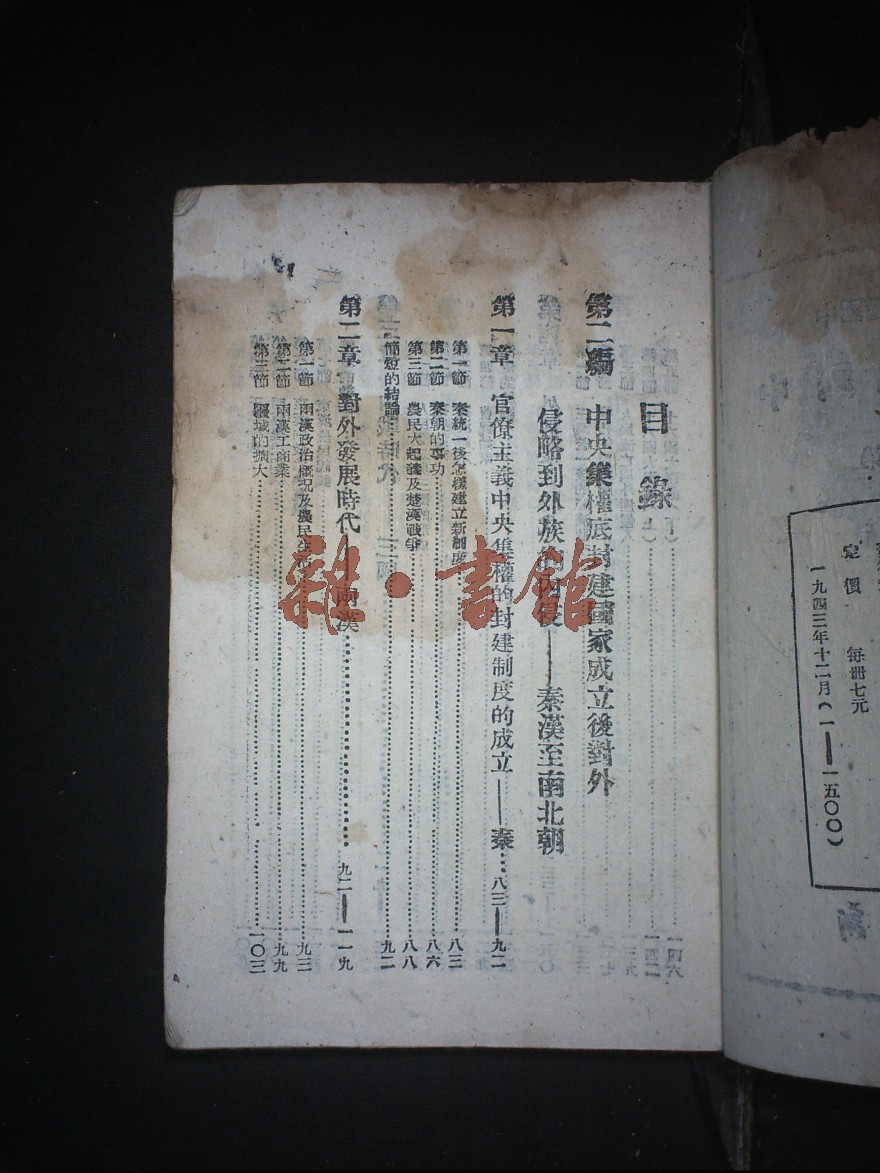 定價 每冊七元
一九四三年十二月(一——一五〇〇)
目錄
第二編 中央集權底封建國家成立後對外
侵略到外族的內侵——秦漢至南北朝
第一章 官僚主義中央集權的封建制度的成立——秦…八三——九二
第一節 秦統一後怎樣建立新制度……八三
第二節 秦朝的事功……八六
第三節 農民大起義及楚漢戰爭……八八
簡短的結論……九二
第二章 對外發展時代——兩漢……九二——一一九
第一節 兩漢政治概况及農民生活……九二
第二節 兩漢工商業……九九
第三節 疆域的擴大……一〇三
雜·書館